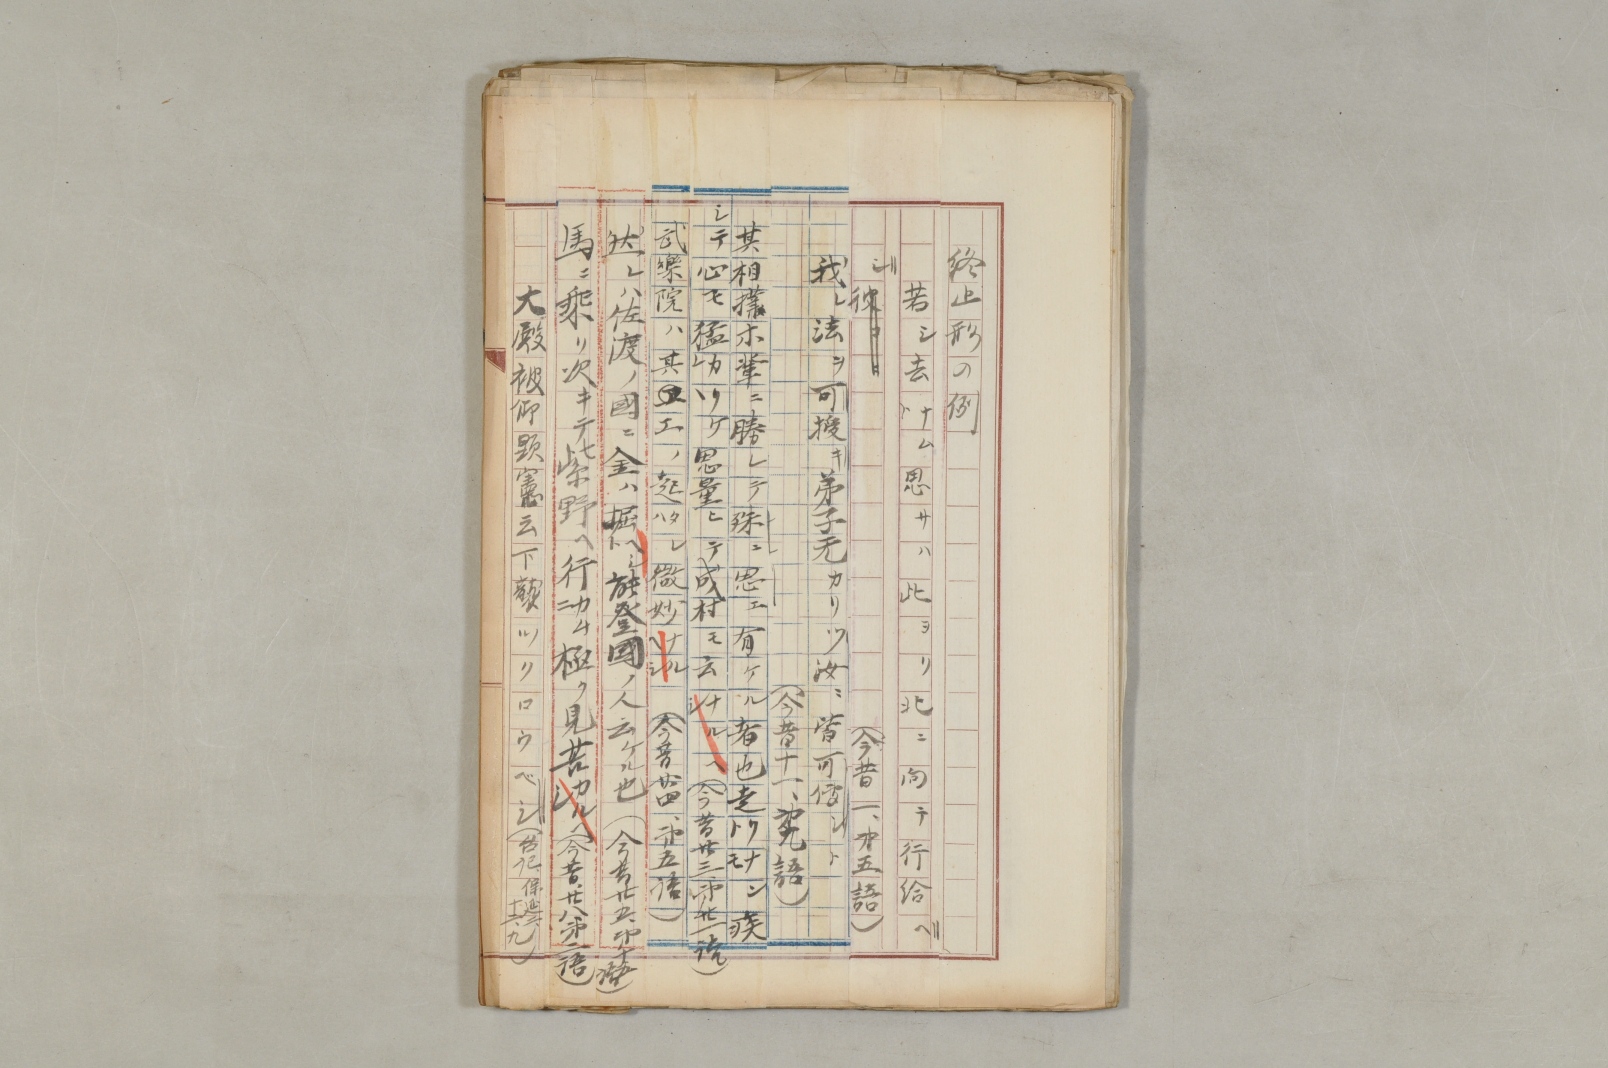 終止形の例
若シ去ナムト思サハ此ヨリ北ニ向テ行給ヘ
シ (今昔一、第五語)
我レ法ヲ可授キ弟子无カリツ汝ニ皆可傳シト
(今昔十一、第九語)
其相撲ホ輩ニ勝レテ殊ニ思エ有ケル者也走トクナンモ疾
シテ心モ猛カリケリ思量ヒテ成村モ云ナルヘシ (今昔廿三、第廿一語)
武樂院ハ其工ノ起ハタレ微妙ナルヘシ (今昔廿四、第五語)
然レハ佐渡ノ國ニ金ハ掘ヘシト能登國ノ人云ケル也 (今昔廿五、第十語)
馬ニ乘リ次キテ紫野ヘ行カムニ極ク見苦カルヘシ (今昔、廿八、第二語)
大殿被仰顕憲云下歌ツリロウベシ (台記、保延六、十、九)